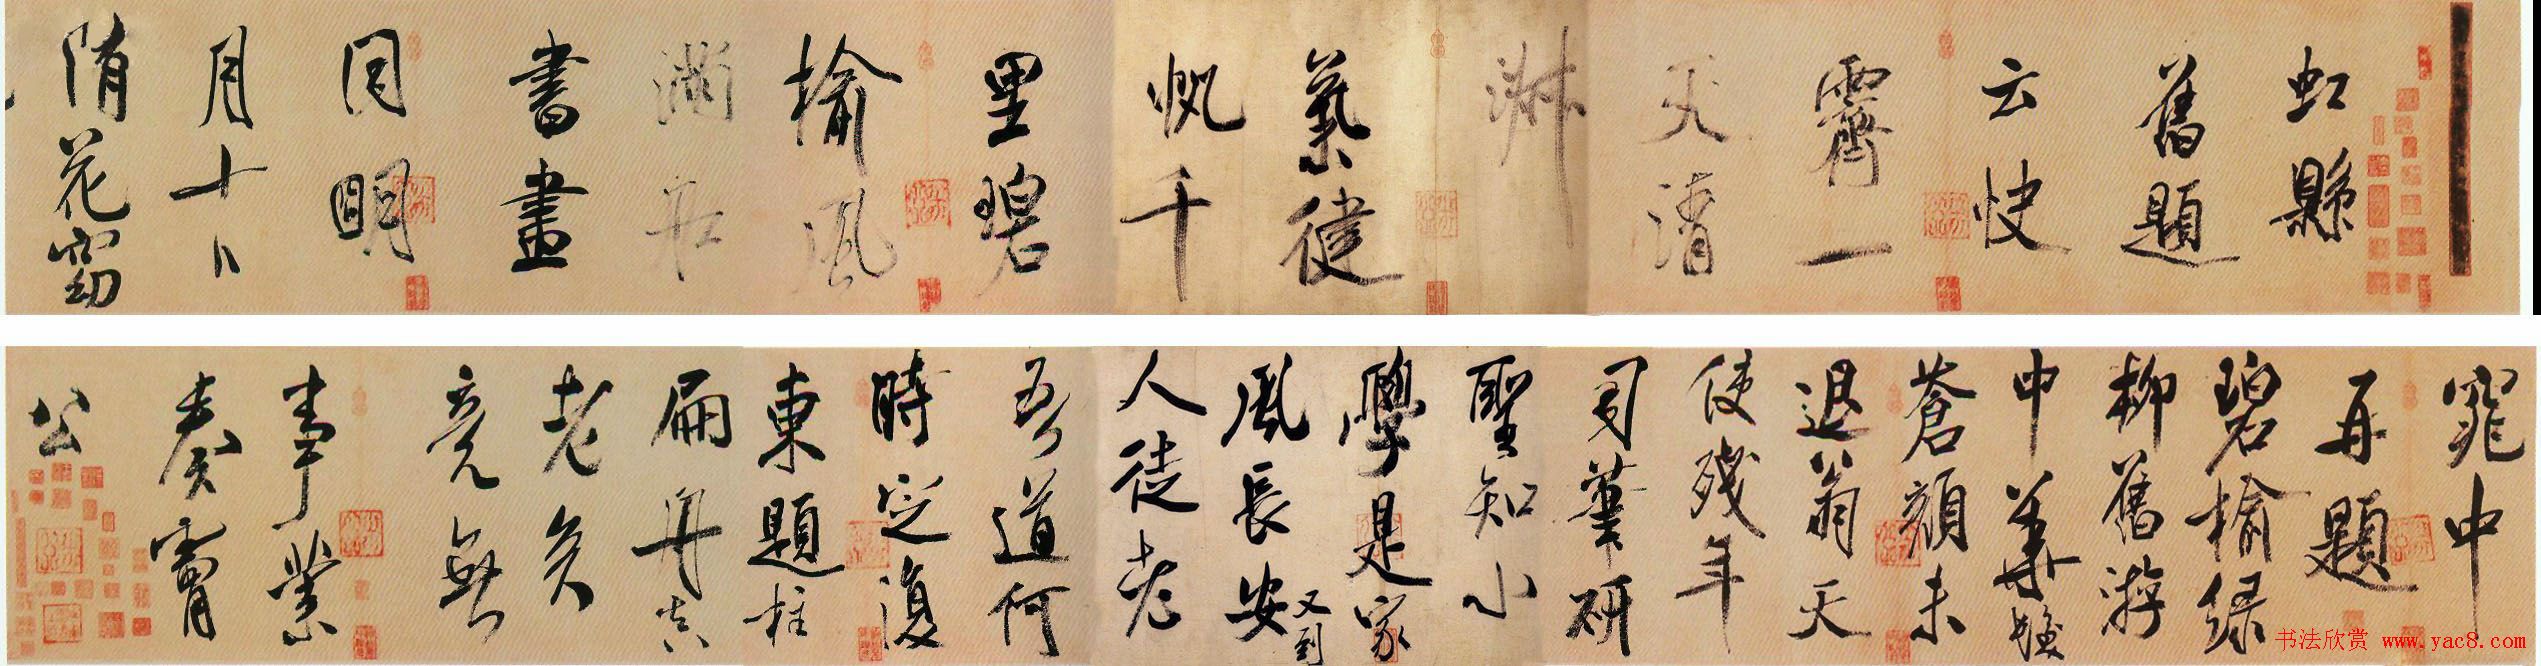 虹縣
舊題
云快
霽一
天清
淑
氣健
帆千
里碧
榆風
滿舡
書畫
同明
月十日
隋花窈
窕中
再題
碧榆綠
柳舊游
中華髮
蒼顏未
退翁天
使殘年
司筆研
聖知小
學是家
風長安又到
人徒老
吾道何
時定復
東題柱
扁舟真
老矣
竟無
事業
奏膚
公
书法欣赏 www.yac8.com